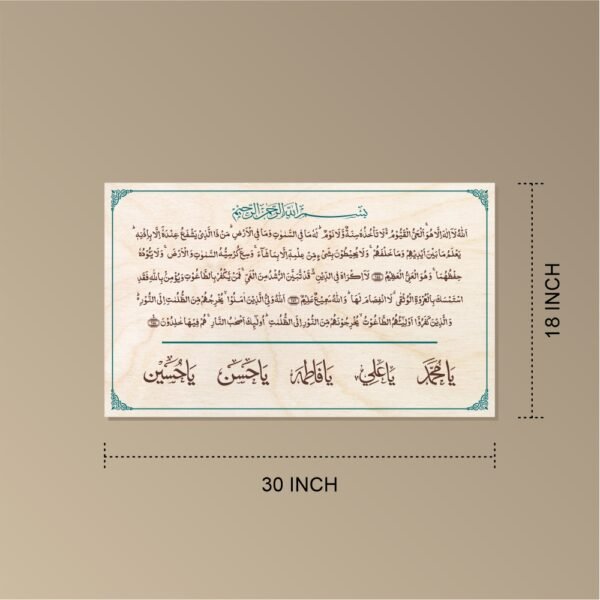 بِسْمِ اللّٰهِ الرَّحْمٰنِ الرَّحِيْمِ
اَللّٰهُ لَاۤ اِلٰهَ اِلَّا هُوَ ۚ اَلْحَىُّ الْقَيُّوْمُ ۚ لَا تَاْخُذُهٗ سِنَةٌ وَّلَا نَوْمٌ ؕ لَهٗ مَا فِى السَّمٰوٰتِ وَمَا فِى الْاَرْضِ ؕ مَنْ ذَا الَّذِىْ يَشْفَعُ عِنْدَهٗۤ اِلَّا بِاِذْنِهٖ ؕ
يَعْلَمُ مَا بَيْنَ اَيْدِيْهِمْ وَمَا خَلْفَهُمْ ۚ وَلَا يُحِيْطُوْنَ بِشَىْءٍ مِّنْ عِلْمِهٖۤ اِلَّا بِمَا شَآءَ ۚ وَسِعَ كُرْسِيُّهُ السَّمٰوٰتِ وَالْاَرْضَ ۚ وَلَا يَـُٔوْدُهٗ
حِفْظُهُمَا ۚ وَهُوَ الْعَلِىُّ الْعَظِيْمُ لَاۤ اِكْرَاهَ فِى الدِّيْنِ ۙ قَدْ تَّبَيَّنَ الرُّشْدُ مِنَ الْغَىِّ ۚ فَمَنْ يَّكْفُرْ بِالطَّاغُوْتِ وَيُؤْمِنْۢ بِاللّٰهِ فَقَدِ
اسْتَمْسَكَ بِالْعُرْوَةِ الْوُثْقٰى ۗ لَا انْفِصَامَ لَهَا ؕ وَاللّٰهُ سَمِيْعٌ عَلِيْمٌ اَللّٰهُ وَلِىُّ الَّذِيْنَ اٰمَنُوْا ۙ يُخْرِجُهُمْ مِّنَ الظُّلُمٰتِ اِلَى النُّوْرِ ؕ
وَالَّذِيْنَ كَفَرُوْۤا اَوْلِيٰٓـُٔهُمُ الطَّاغُوْتُ ۙ يُخْرِجُوْنَهُمْ مِّنَ النُّوْرِ اِلَى الظُّلُمٰتِ ؕ اُولٰٓئِكَ اَصْحٰبُ النَّارِ ۚ هُمْ فِيْهَا خٰلِدُوْنَ
يَا مُحَمَّد يَا عَلِي يَا فَاطِمَة يَا حَسَن يَا حُسَيْن
18 INCH
30 INCH